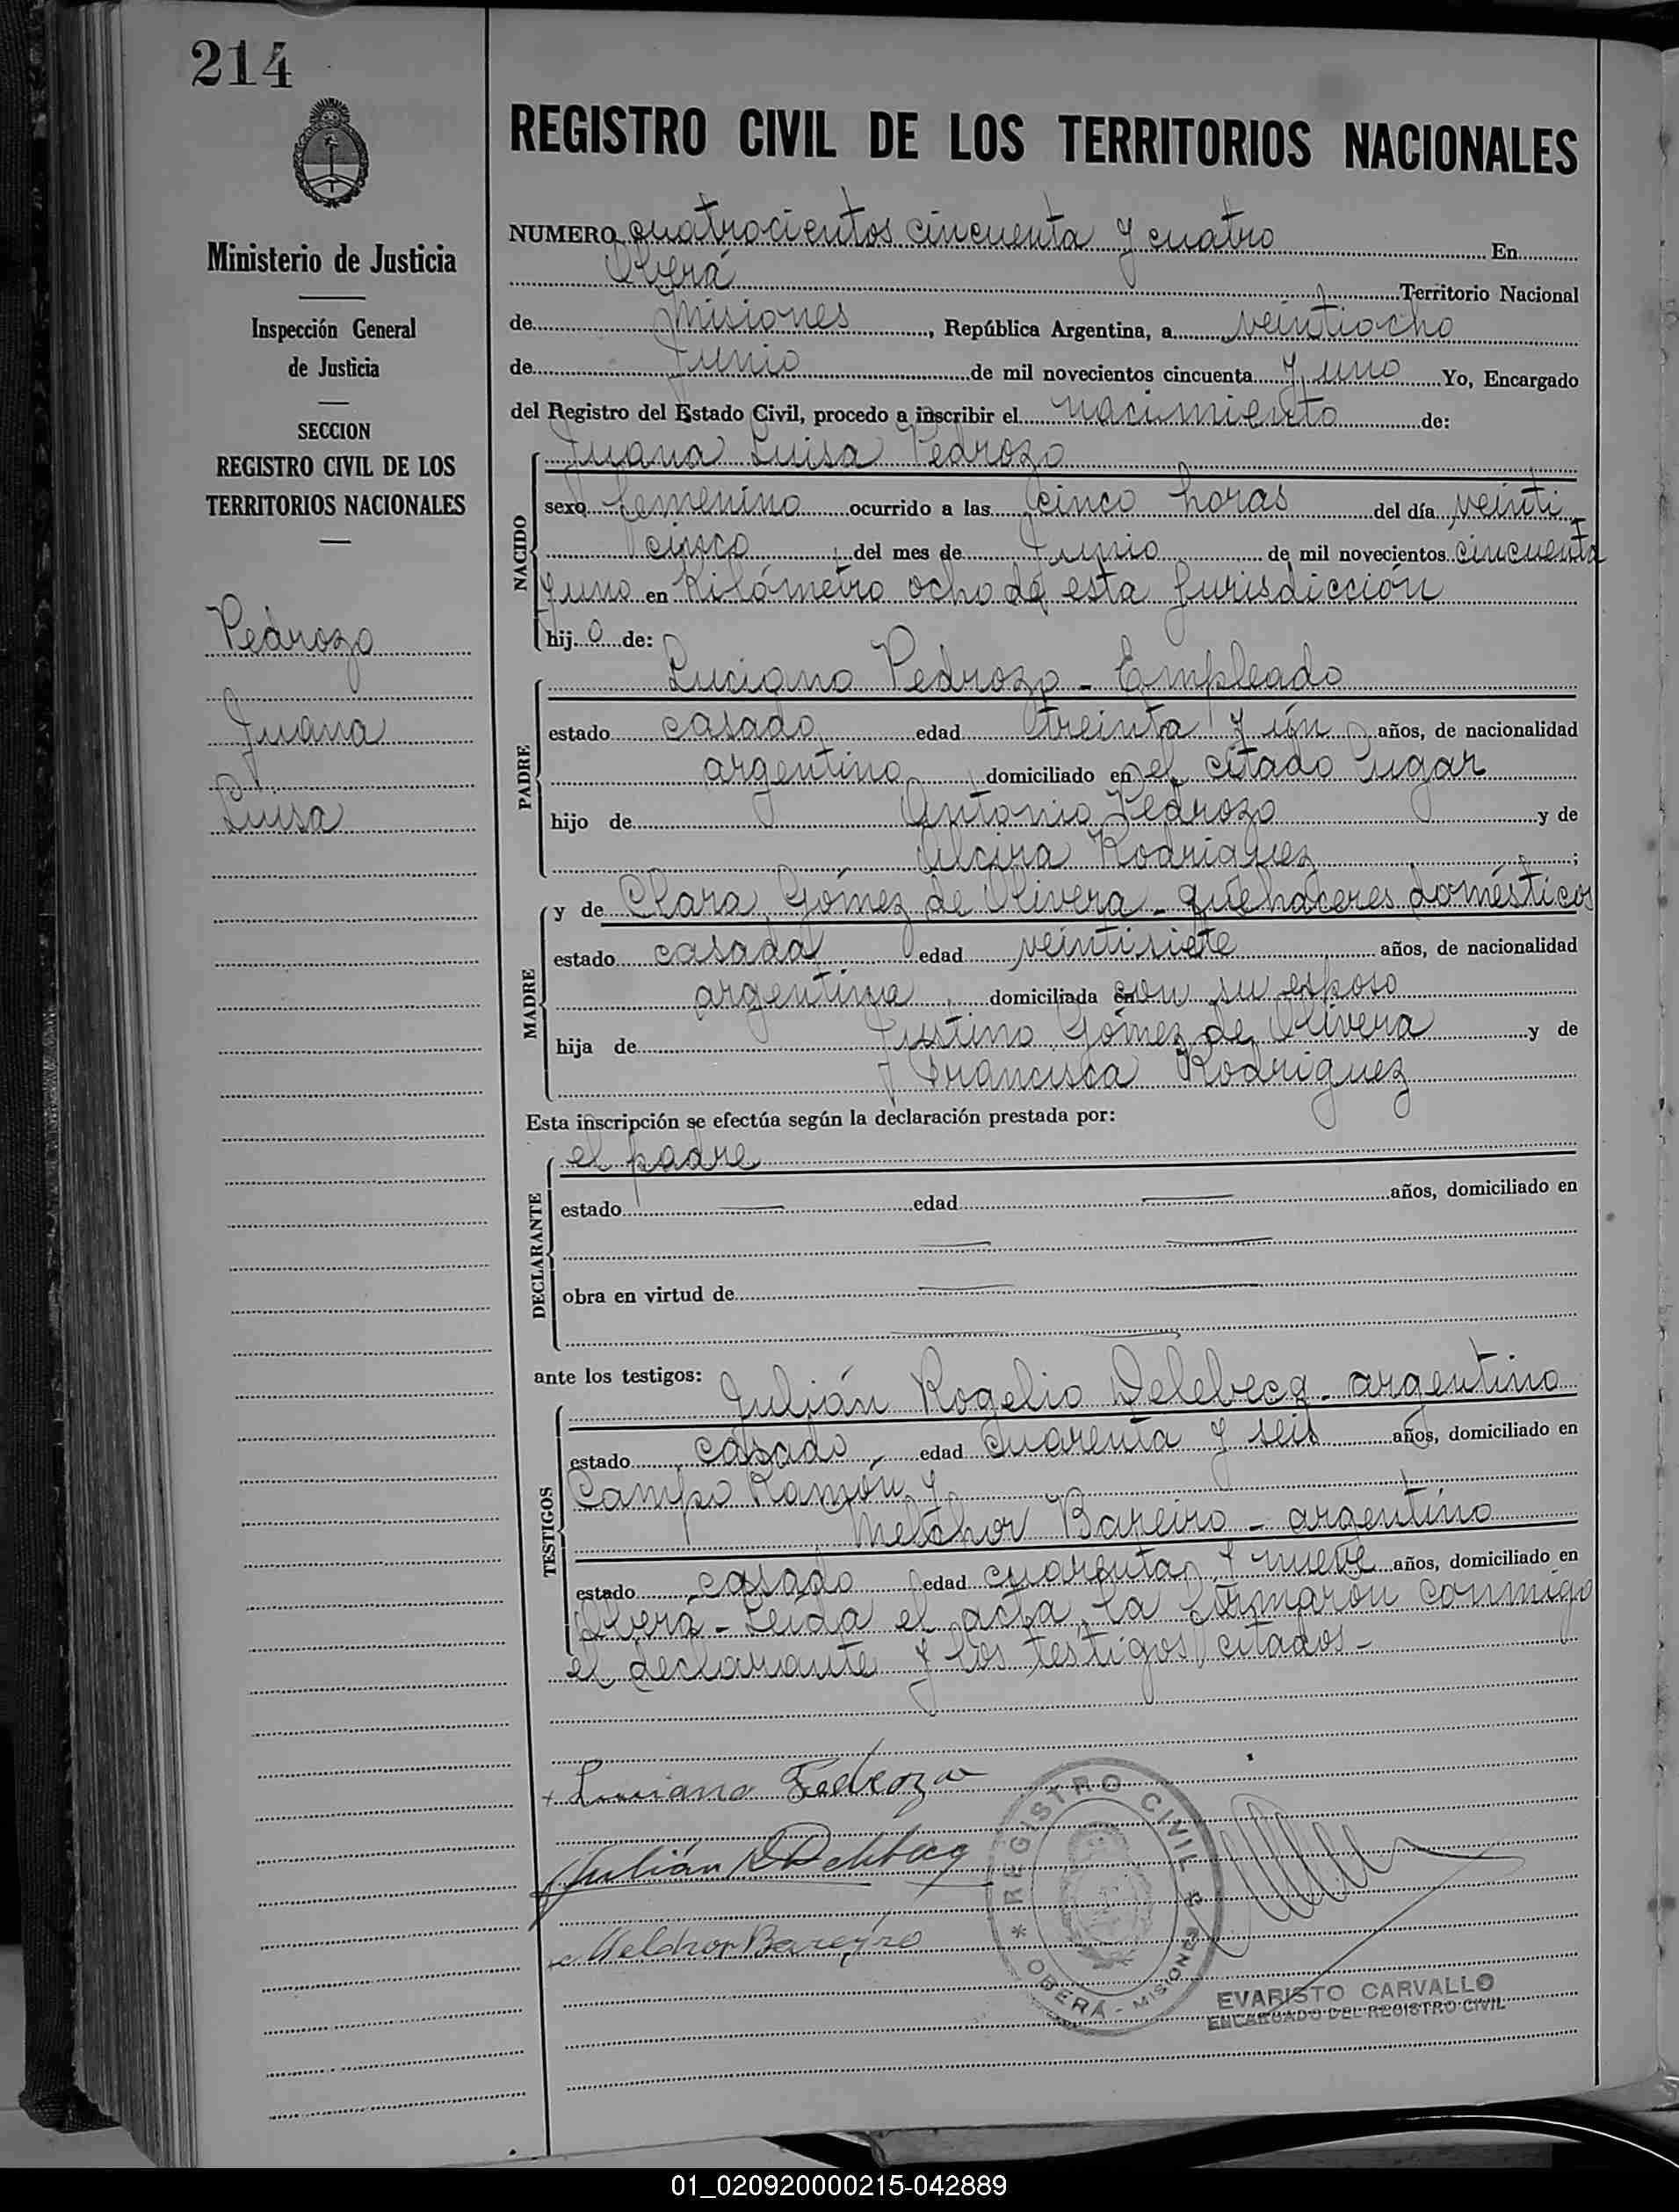 214
REGISTRO CIVIL DE LOS TERRITORIOS NACIONALES
Ministerio de Justicia
Inspección General
de Justicia
SECCION
REGISTRO CIVIL DE LOS
TERRITORIOS NACIONALES
Pedrozo
Juana
Luisa
NUMERO cuatrocientos cincuenta y cuatro En
Oberá Territorio Nacional
de Misiones, República Argentina, a veintiocho
de Junio de mil novecientos cincuenta y uno Yo, Encargado
del Registro del Estado Civil, procedo a inscribir el nacimiento de:
NACIDO
Juana Luisa Pedrozo
sexo femenino ocurrido a las cinco horas del día veinti
cinco del mes de Junio de mil novecientos cincuenta
y uno en Kilómetro ocho de esta Jurisdicción
hij o de:
PADRE
Luciano Pedrozo - Empleado
estado casado edad treinta y un años, de nacionalidad
argentino domiciliado en el citado lugar
hijo de Antonio Pedrozo y de
Alcira Rodriguez;
MADRE
y de Clara Gómez de Olivera - quehaceres domésticos
estado casada edad veintisiete años, de nacionalidad
argentina domiciliada con su esposo
hija de Justino Gómez de Olivera y de
Francisca Rodriguez
Esta inscripción se efectúa según la declaración prestada por:
DECLARANTE
el padre
estado edad años, domiciliado en
obra en virtud de
ante los testigos:
TESTIGOS
Julián Rogelio Delebecq - argentino
estado casado edad cuarenta y seis años, domiciliado en
Campo Ramón y
Melchor Bareiro - argentino
estado casado edad cuarenta y nueve años, domiciliado en
Oberá - Leída el acta, la firmaron conmigo
el declarante y los testigos citados -
Luciano Pedrozo
Julián R Delebecq
Melchor Bareyro
REGISTRO CIVIL
OBERÁ - MISIONES
EVARISTO CARVALLO
ENCARGADO DEL REGISTRO CIVIL
01_020920000215-042889